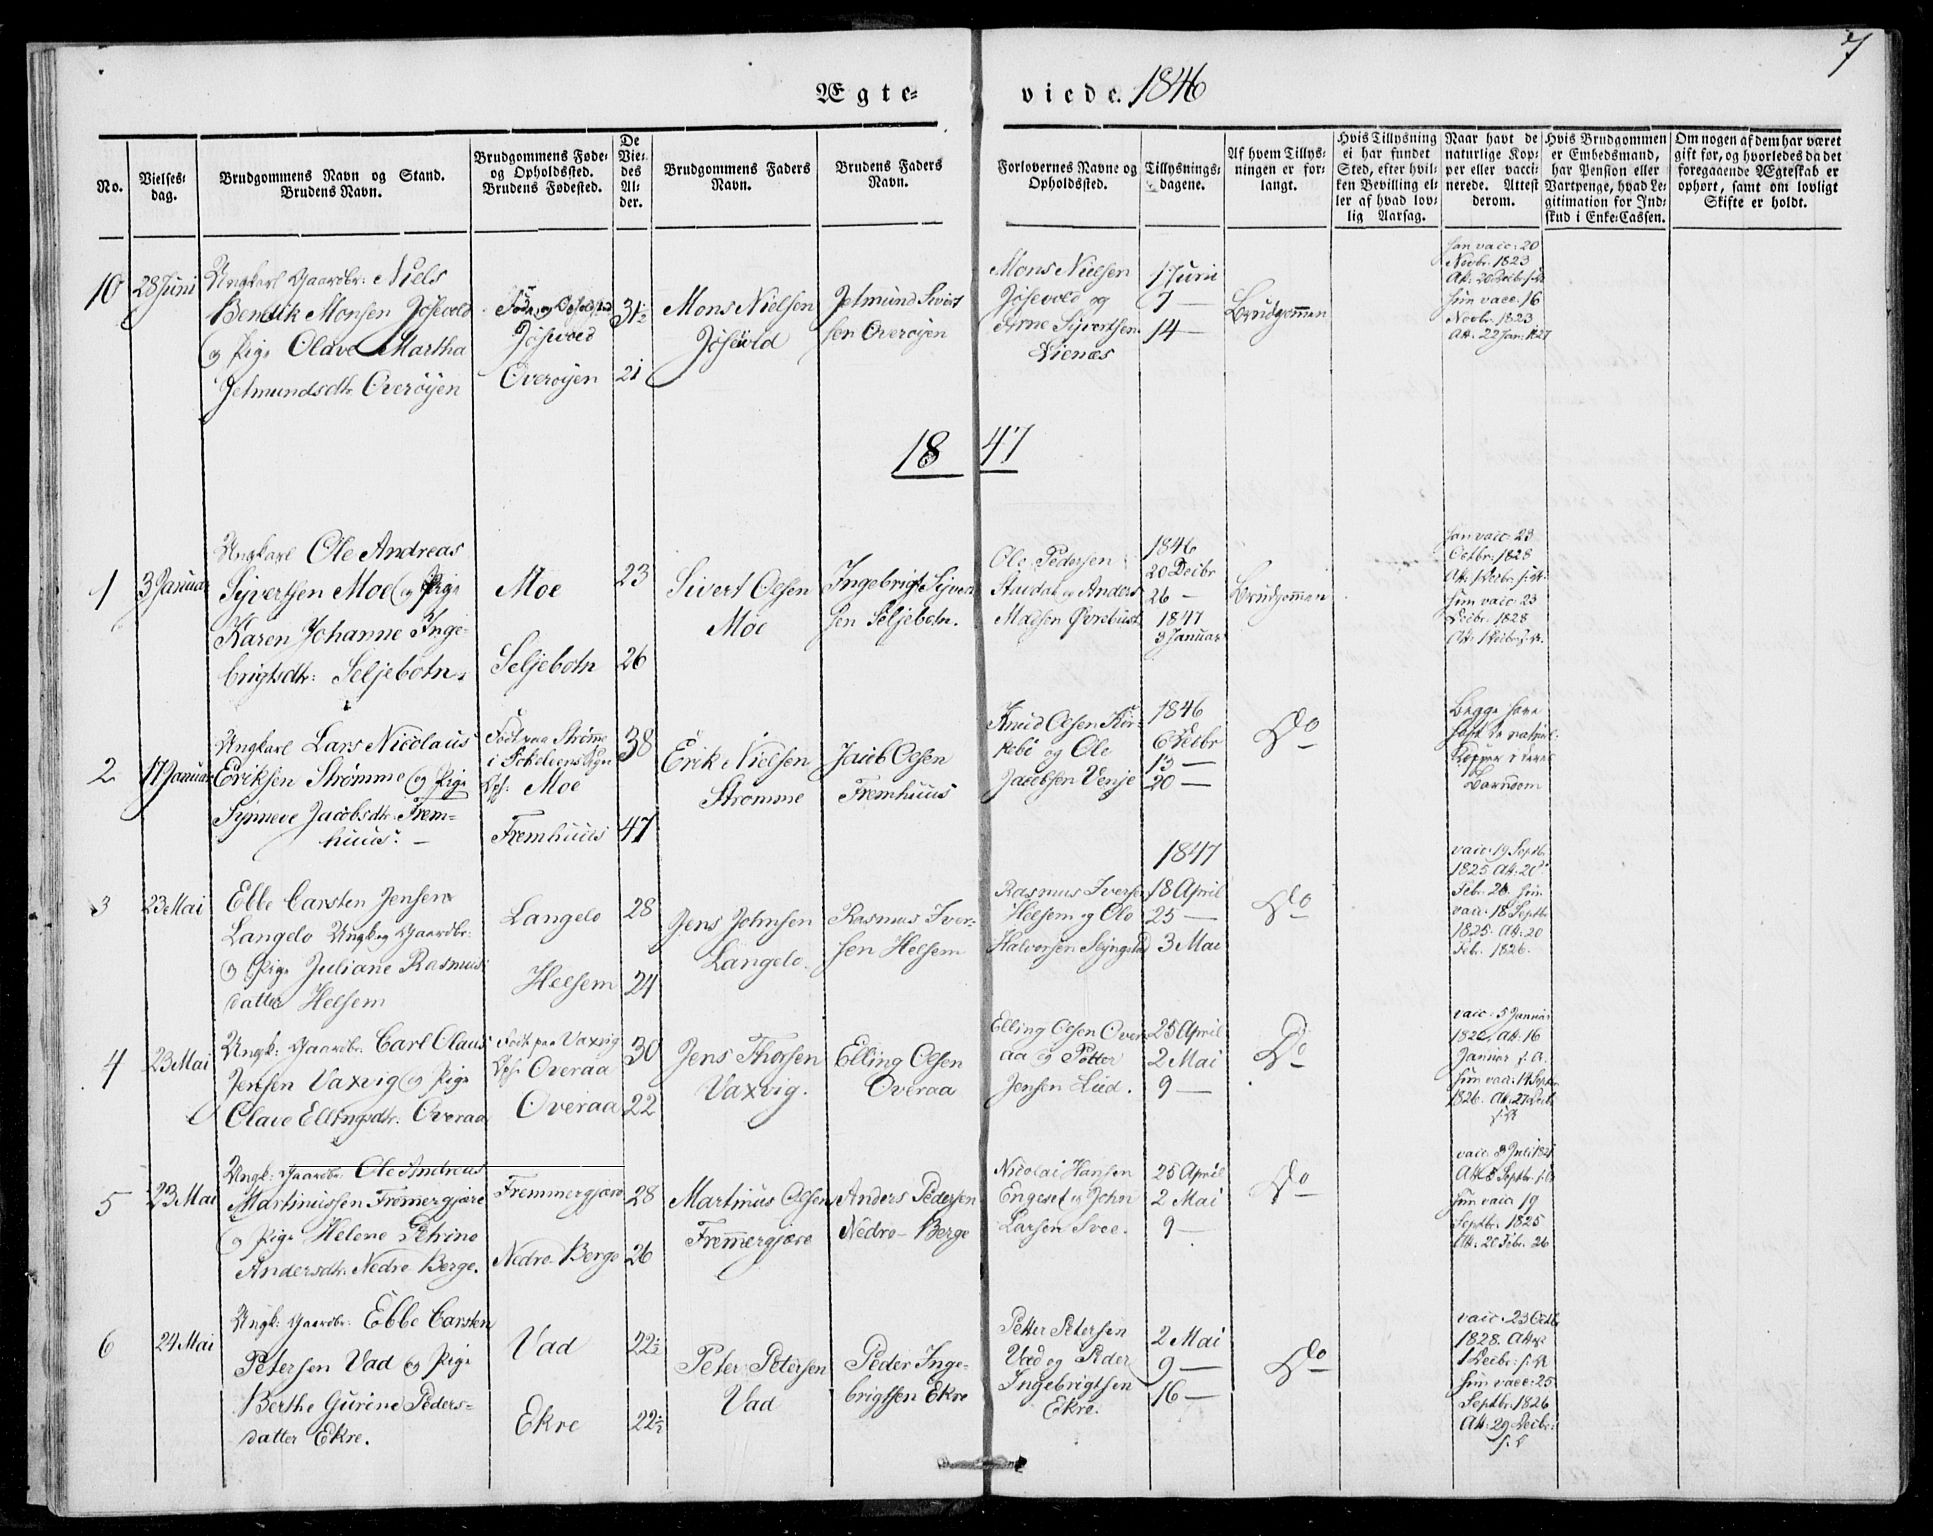 7
Ægte-
viede. 1846
No.
Vielses-
dag.
Brudgommens Navn og Stand.
Brudens Navn.
Brudgommens Føde-
og Opholdssted.
Brudens Fødested.
De
Vie-
des
Al-
der.
Brudgommens Faders
Navn.
Brudens Faders
Navn.
Forlovernes Navne og
Opholdssted.
Tillysnings-
dagene.
Af hvem Tillys-
ningen er for-
langt.
Hvis Tillysning
ei har fundet
Sted, efter hvil-
ken Bevilling el-
ler af hvad lov-
lig Aarsag.
Naar havt de
naturlige Kop-
per eller vacci-
nerede. Attest
derom.
Hvis Brudgommen
er Embedsmand,
har Pension eller
Vartpenge, hvad Le-
gitimation for Ind-
skud i Enke-Cassen.
Om nogen af dem har været
gift før, og hvorledes da det
foregaaende Ægteskab er
ophørt, samt om lovligt
Skifte er holdt.
10
28 Juni
Ungkarl Gaardbr: Niels
Bendik Monsen Jøsevold
og Pige Olave Martha
Jetmundsdtr Overøyen
Jøsevold
Overøyen
31½
21
Mons Nielsen
Jøsevold
Jetmund Sivert
sen Overøyen
Mons Nielsen
Jøsevold og
Arne Sijvertsen
Vienæs
7 —
14 —
Brudgommen
han vacc: 20
Novbr. 1823
hun vacc. 16
Novbr. 1823
Att. 22 Jan: 1827
1847
1
3 Januar
Ungkarl Ole Andreas
Sijvertsen Moe og Pige
Karen Johanne Inge-
brigtsdtr: Seljebotn.
Moe
Seljebotn
23
26
Sivert Olsen
Moe
Ingebrigt Sijvert
sen Seljebotn.
Ole Pedersen
og Anders
1846
20 Decbr
26 —
1847
3 Januar
Brudgommen
han vacc: 23
Octbr: 1828
hun vacc: 23
1828
2
17 Januar
Ungkarl Lars Nicolaus
Eriksen Strømme og Pige
Synneve Jacobsdtr. Frem-
huus. —
Født paa Strømme
Moe
Fremhuus
38
47
Erik Nielsen
Strømme
Jacob Olsen
Fremhuus
Knud Olsen
og Ole
Jacobsen Venje
1846
6 Decbr
13 —
20 —
Do
Begge have
havt de naturl:
Kopper i deres
Barndom
3
23 Mai
Ebbe Carsten Jensen
Langelo Ungk og Gaardbr.
og Pige Juliane Rasmus-
datter Helsem
Langelo
Helsem
28
24
Jens Johnsen
Langelo.
Rasmus Iver-
sen Helsem
Rasmus Iversen
Helsem og Ole
Halvorsen Slyngstad
1847
18 April
25 —
3 Mai
Do
vacc: 19 Septbr.
1825 Att: 20de
Febr. 26. hun
vacc: 18 Septbr
1825. Att: 20
Febr. 1826.
4
23 Mai
Ungk: Gaardbr. Carl Olaus
Jensen Vaxvig og Pige
Olave Ellingsdtr. Overaa
Født paa Vaxvig
Overaa
Overaa
30
22
Jens Thorsen
Vaxvig.
Elling Olsen
Overaa
Elling Olsen Over-
aa og Petter
Jensen Lied.
25 April
2 Mai
9 —
Do
vacc: 5 Januar
Att: 16
Januar s. A.
hun vacc: 14 Septbr.
1826. Att. 27 Decbr
5
23 Mai
Ungk: Gaardbr. Ole Andreas
Martinussen Fremmergjære
og Pige Helene Petrine
Andersdtr. Nedre Berge.
Fremmergjære
Nedre Berge
28
26
Martinus Olsen
Fremmergjære
Anders Pedersen
Nedre Berge
Nicolai Hansen
Engeset og John
Larsen Svee.
25 April
2 Mai
9 —
Do
hun vacc: 19
Septbr. 1825
Att: 20 Febr. 26
6
24 Mai
Ungk: Gaardbr. Ebbe Carsten
Petersen Vad og Pige
Berthe Gurine Peders-
datter Ekre.
Vad
Ekre
22½
22½
Peter Petersen
Vad
Peder Inge-
brigtsen Ekre
Petter Petersen
Vad og Peder
Ingebrigtsen
Ekre.
2 Mai
9 —
16 —
Do
vacc: 23 Octbr
1828. Att:
1 Decbr: s. A.
hun vacc: 25
Septbr. 1826
Att: 29 Decbr: